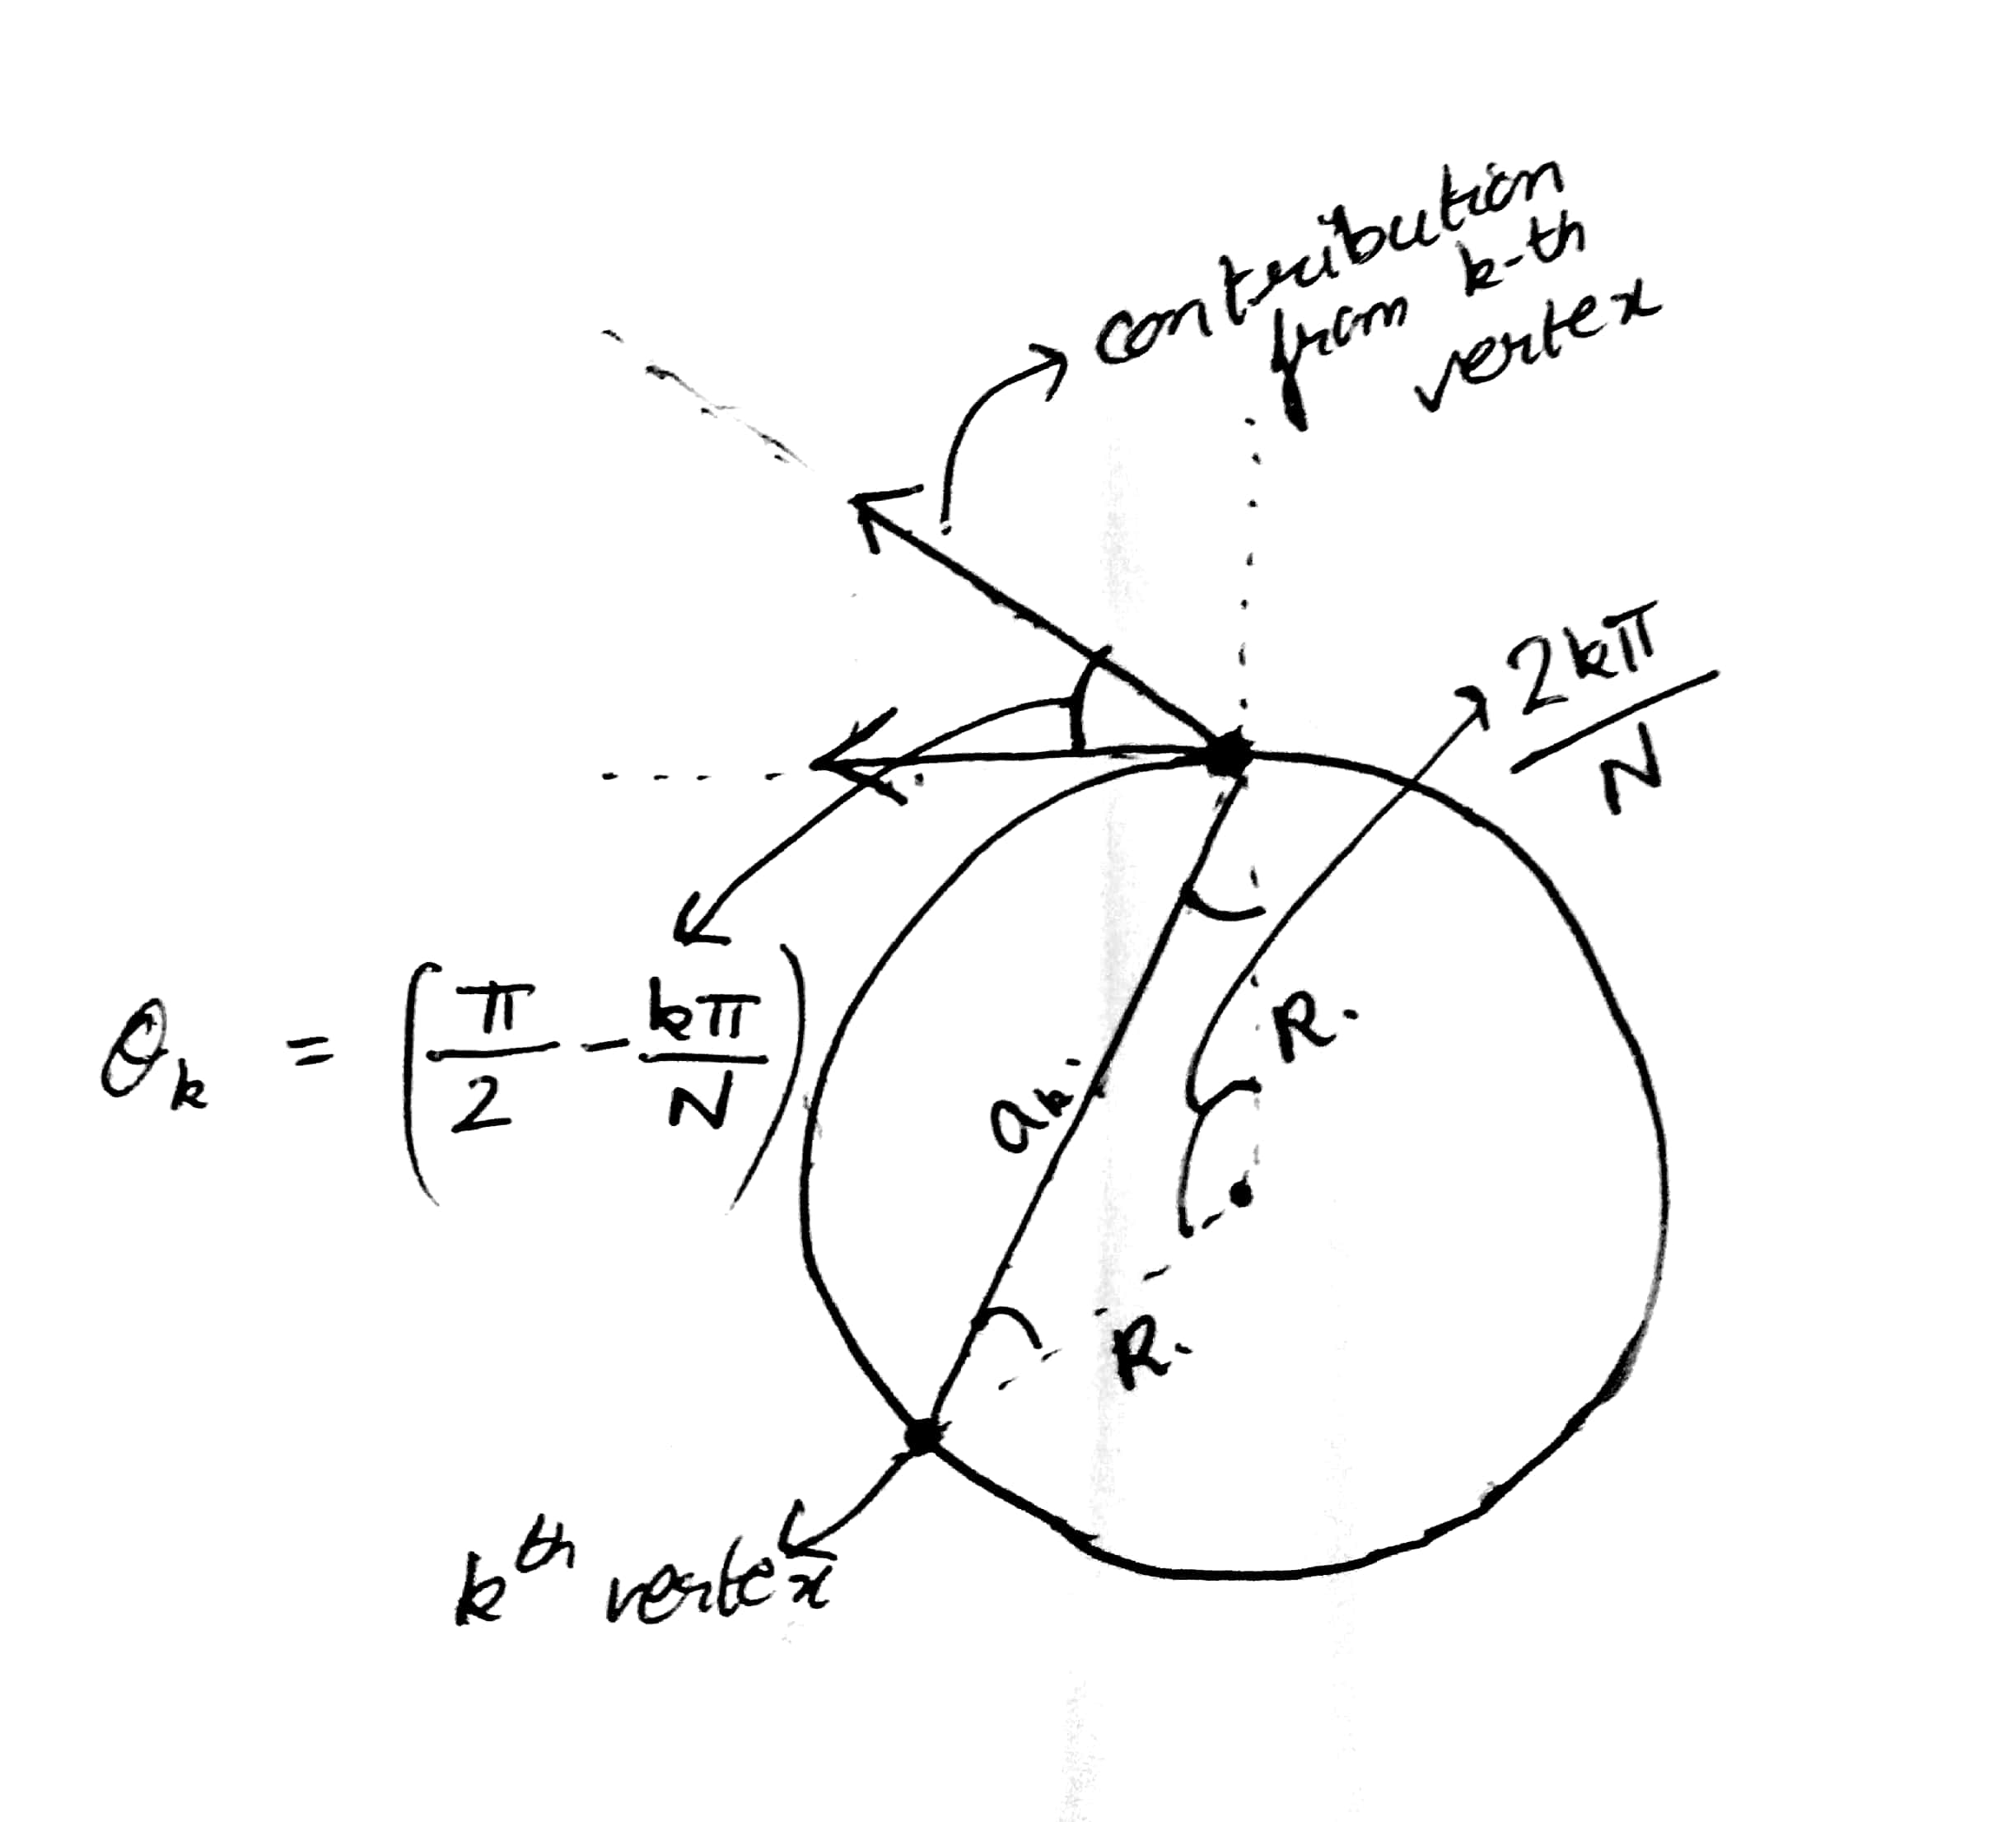 contribution
from k-th
vertex
2kπ
N
θk = (π/2 - kπ/N)
R.
ak.
R.
kth vertex